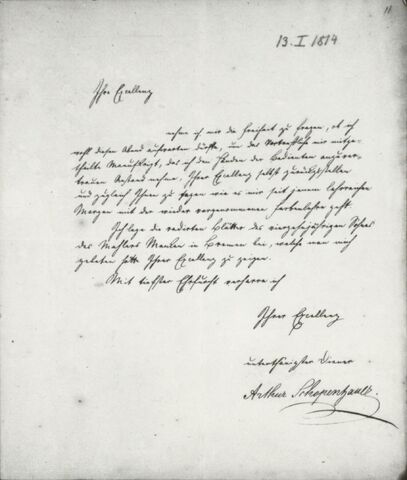 11
13. I 1814
Ihro Excellenz
nehme ich mir die Freiheit zu fragen, ob ich
wohl diesen Abend aufwarten dürfte, um das mitge-
theilte Manuskript, das ich den Händen der Bedienten anzuver-
trauen Anstand nehme, Ihrer Excellenz selbst zurückzustellen
und zugleich Ihnen zu sagen wie es mir seit jenem lehrreichen
Morgen mit der wieder vorgenommenen Farbenlehre geht
Ich lege die radirten Blätter des vierzehnjährigen Sohns
des Mahlers Menken in Bremen bei, welche man mich
gebeten hatte Ihrer Excellenz zu zeigen.
Mit tiefster Ehrfurcht verharre ich
Ihrer Excellenz
unterthänigster Diener
Arthur Schopenhauer.